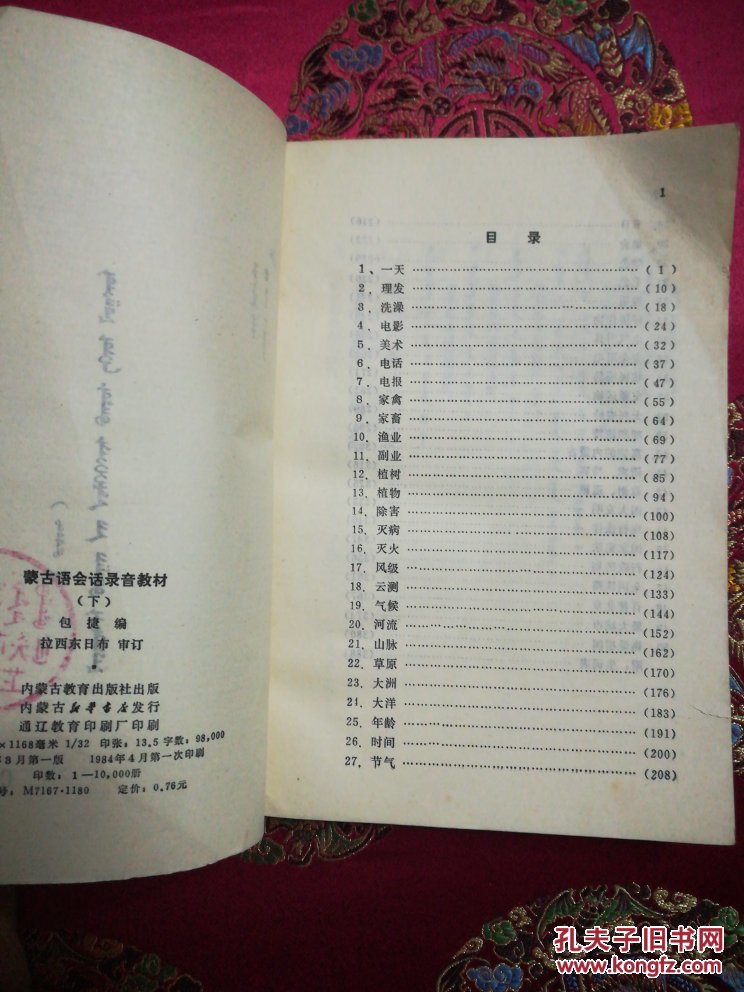 蒙古语会话录音教材
（下）
包 捷 编
拉西东日布 审订
内蒙古教育出版社出版
内蒙古新华书店发行
通辽教育印刷厂印刷
×1168毫米 1/32 印张：13.5 字数：98,000
3月第一版 1984年4月第一次印刷
印数：1—10,000册
号：M7167·1180 定价：0.76元
1
目 录
1、一天 ……………（1）
2．理发 ……………（10）
3．洗澡 ……………（18）
4．电影 ……………（24）
5．美术 ……………（32）
6．电话 ……………（37）
7．电报 ……………（47）
8．家禽 ……………（55）
9．家畜 ……………（64）
10．渔业 ……………（69）
11．副业 ……………（77）
12．植树 ……………（85）
13．植物 ……………（94）
14．除害 ……………（100）
15．灭病 ……………（108）
16．灭火 ……………（117）
17．风级 ……………（124）
18．云测 ……………（133）
19．气候 ……………（144）
20．河流 ……………（152）
21．山脉 ……………（162）
22．草原 ……………（170）
23．大洲 ……………（176）
24．大洋 ……………（183）
25．年龄 ……………（191）
26．时间 ……………（200）
27．节气 ……………（208）
孔夫子旧书网
www.kongfz.com